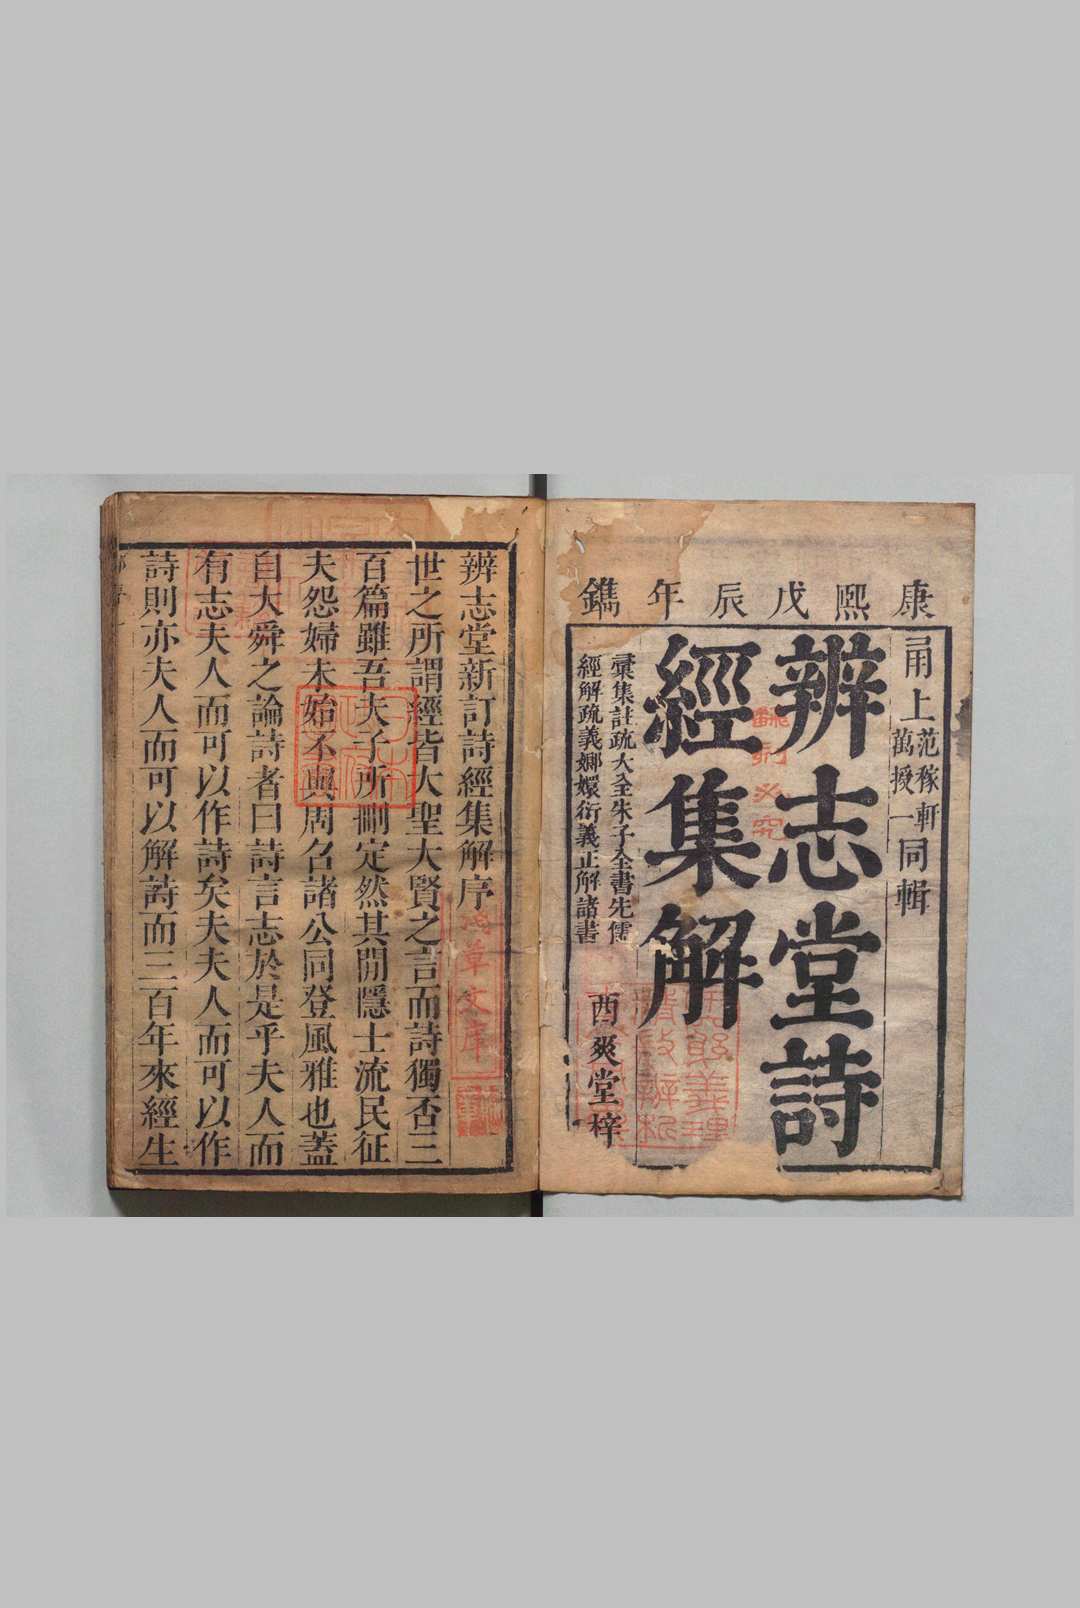 康熙戊辰年鐫
甬上范稼軒萬授一同輯
辨志堂詩
經集解
彙集註疏大全朱子全書先儒
經解疏義嫏嬛衍義正解諸書
酉爽堂梓
翻刻必究
辨志堂新訂詩經集解序
世之所謂經皆大聖大賢之言而詩獨否三
百篇雖吾夫子所刪定然其閒隱士流民征
夫怨婦未始不與周召諸公同登風雅也蓋
自大舜之論詩者曰詩言志於是乎夫人而
有志夫人而可以作詩矣夫夫人而可以作
詩則亦夫人而可以解詩而三百年來經生
草文庫